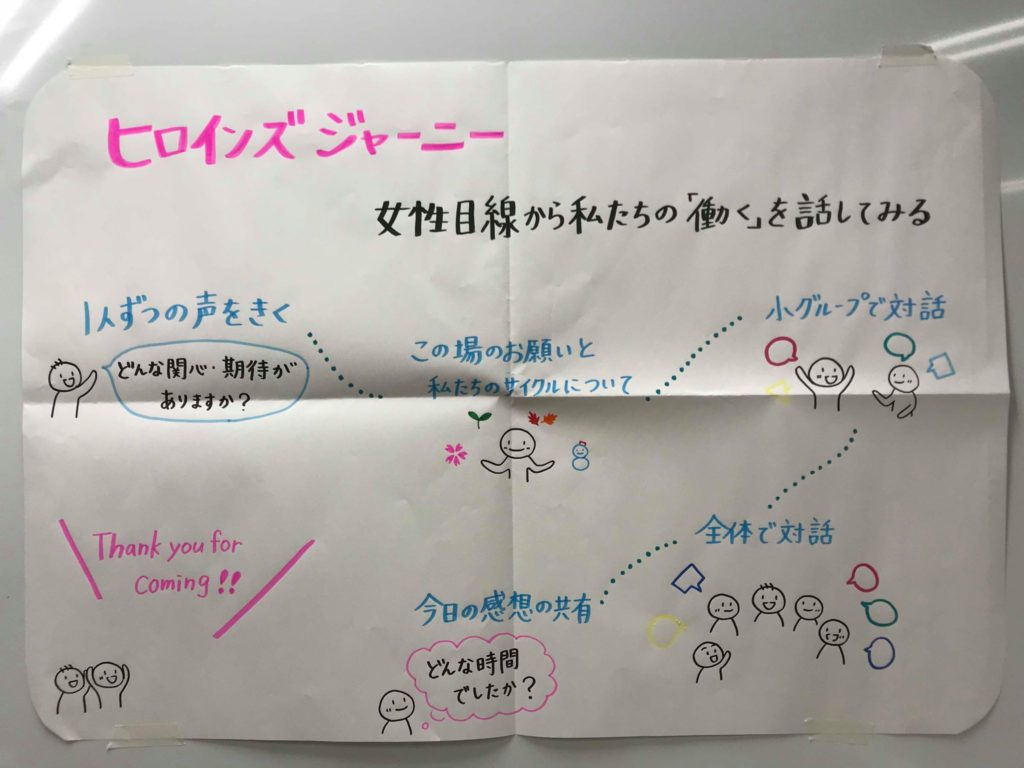 ヒロインズジャーニー
女性目線から私たちの「働く」を話してみる
1人ずつの声をきく
どんな関心・期待が
ありますか？
この場のお願いと
私たちのサイクルについて
小グループで対話
全体で対話
今日の感想の共有
どんな時間
でしたか？
Thank you for
coming!!